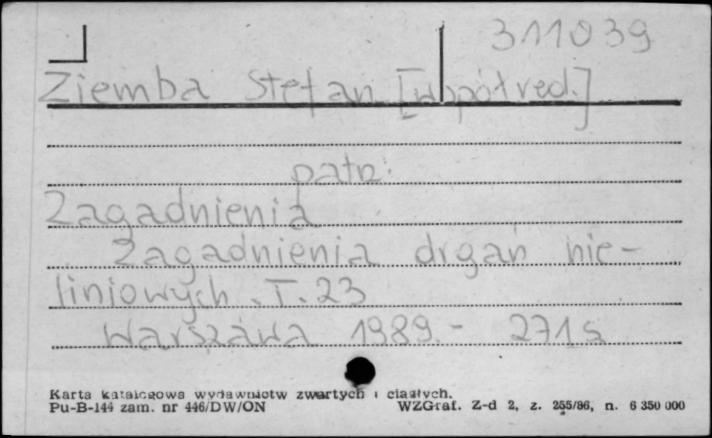 311039
Ziemba Stefan [współred.]
patrz:
Zagadnienia
Zagadnienia drgań nie-
liniowych. T. 23
Warszawa 1989. - 271 s
Karta katalogowa wydawnictw zwartych i ciągłych.
Pu-B-144 zam. nr 446/DW/ON WZGraf. Z-d 2, z. 255/86, n. 6 350 000